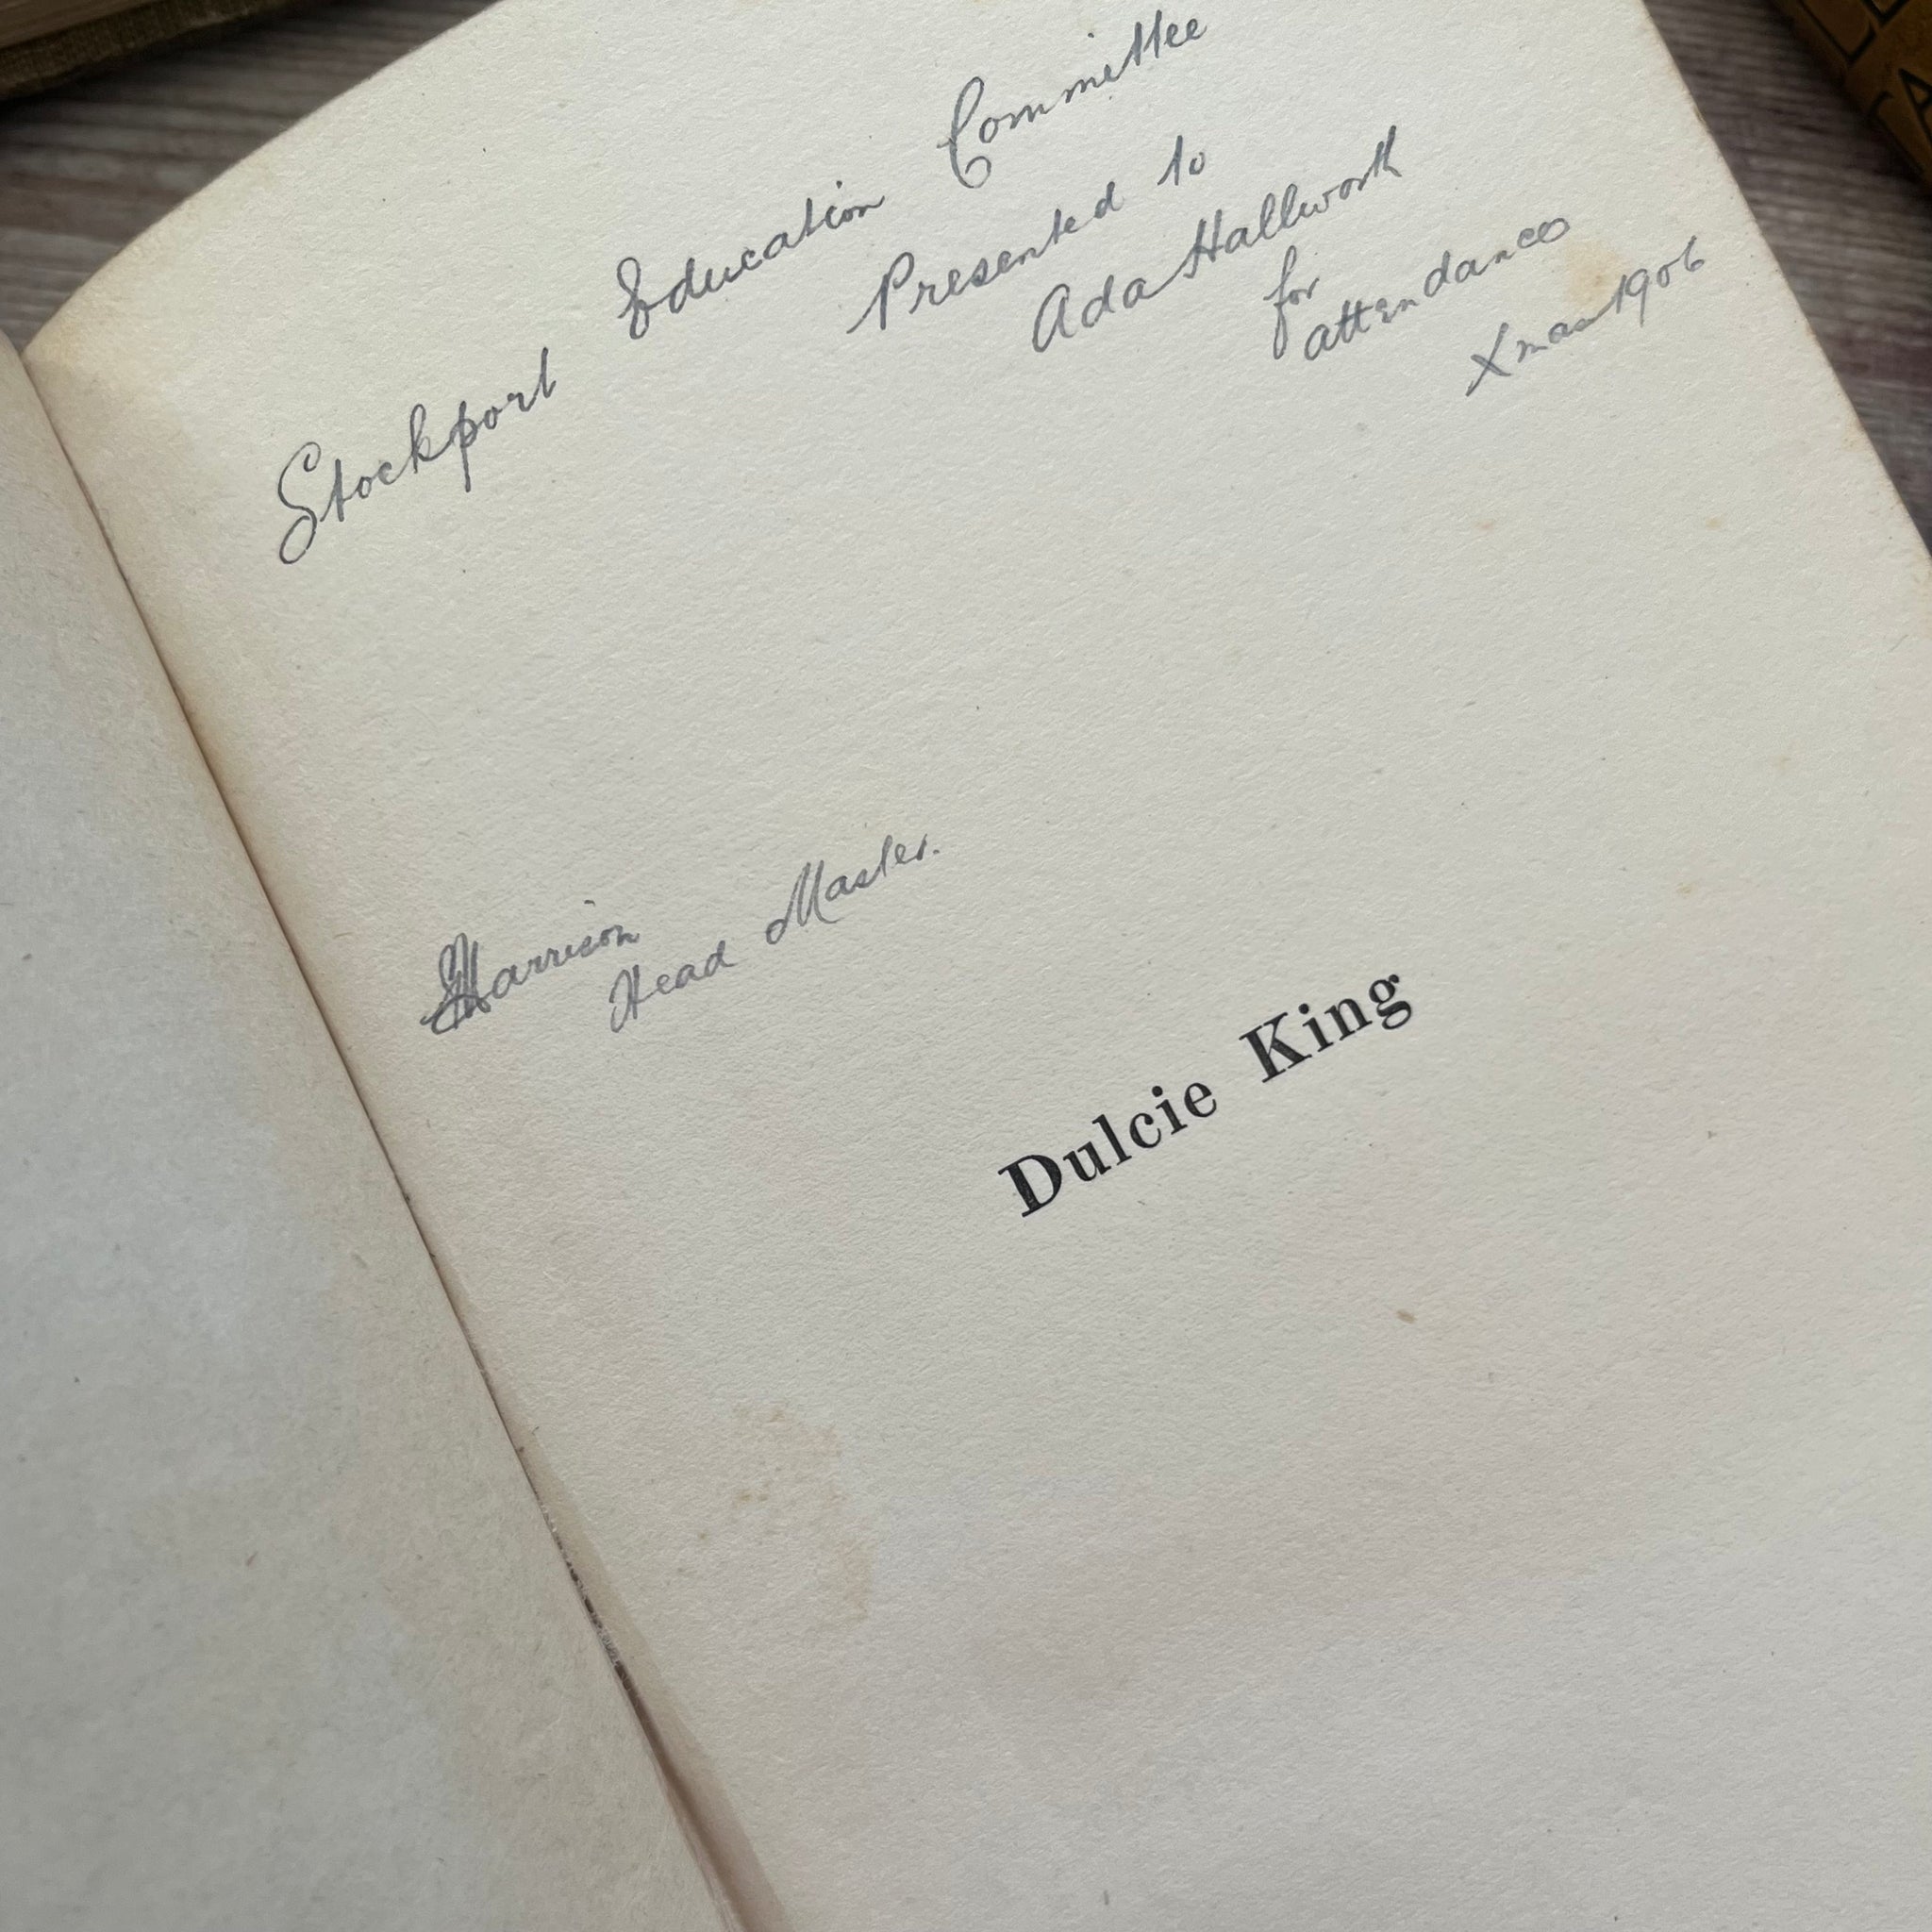 Stockport Education Committee
Presented to
Ada Hallworth
for
attendance
Xmas 1906
Harrison
Head Master.
Dulcie King